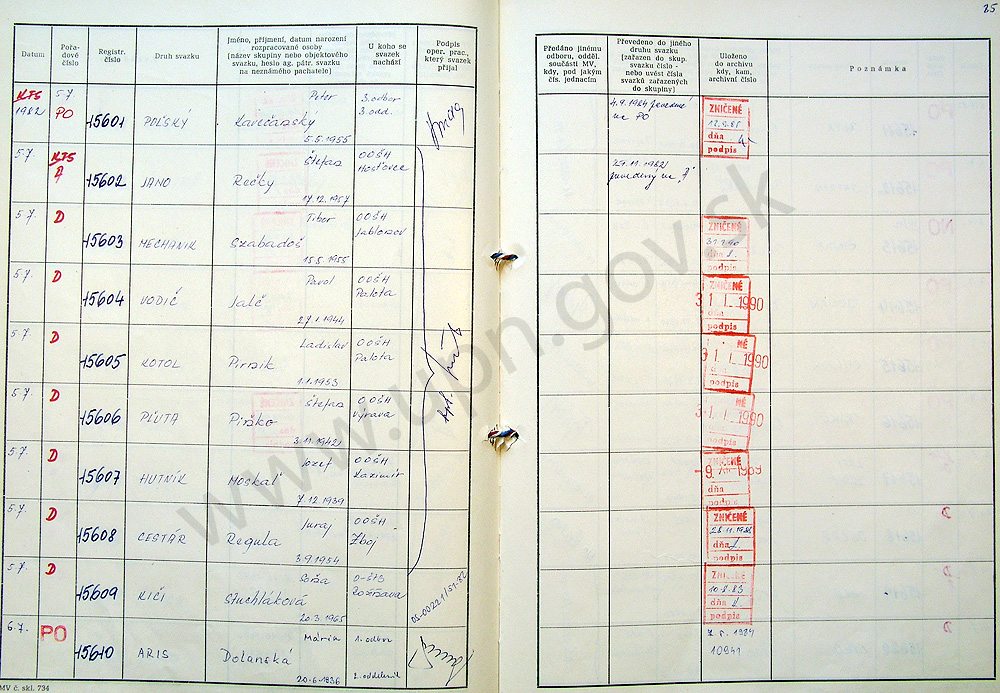 25
Datum
Pořa-
dové
číslo
Registr.
číslo
Druh svazku
Jméno, příjmení, datum narození
rozpracované osoby
(název skupiny nebo objektového
svazku, heslo ag. pátr. svazku
na neznámého pachatele)
U koho se
svazek
nachází
Podpis
oper. prac.,
který svazek
přijal
Předáno jinému
odboru, odděl.
součásti MV,
kdy, pod jakým
čís. jednacím
Převedeno do jiného
druhu svazku
(zařazen do skup.
svazku číslo -
nebo uvést čísla
svazků zařazených
do skupiny)
Uloženo
do archivu
kdy, kam,
archivní číslo
Poznámka
KTS 5.7. Peter 3. odbor
1982 PO 15601 POĽSKÝ 3. odd.
5.5.1955
4.9.1984
na PO
ZNIČENÉ
dňa
podpis
5.7. KTS Štefan OOŠH
A 15602 JANO Rečky Hosťovce
17.12.1957
29.11.1982
zavedený na "A"
5.7. D Tibor OOŠH
15603 MECHANIK Szabadoš Jablonov
15.5.1955
ZNIČENÉ
dňa
podpis
5.7. D Pavol OOŠH
15604 VODIČ Jalč Palota
27.1.1944
ZNIČENÉ
31. I. 1990
podpis
5.7. D Ladislav OOŠH
15605 KOTOL Palota
1.1.1953
31. I. 1990
dňa
podpis
5.7. D Štefan OOŠH
15606 PLUTA Výrava
3.11.1942
31. I. 1990
podpis
5.7. D Jozef OOŠH
15607 HUTNÍK Moskaľ Kazimír
7.12.1939
ZNIČENÉ
dňa
podpis
5.7. D Juraj OOŠH
15608 CESTÁR Regula Zboj
3.9.1954
ZNIČENÉ
dňa
podpis
5.7. D O-ŠTB
15609 KIČI Stuchláková Rožňava
20.3.1965
OS-00221/S1-82
ZNIČENÉ
10.8.83
dňa
podpis
6.7. PO Mária 1. odbor
15610 ARIS Dolanská 2. oddelenie
20.6.1936
1984
10941
MV č. skl. 734
www.upn.gov.sk